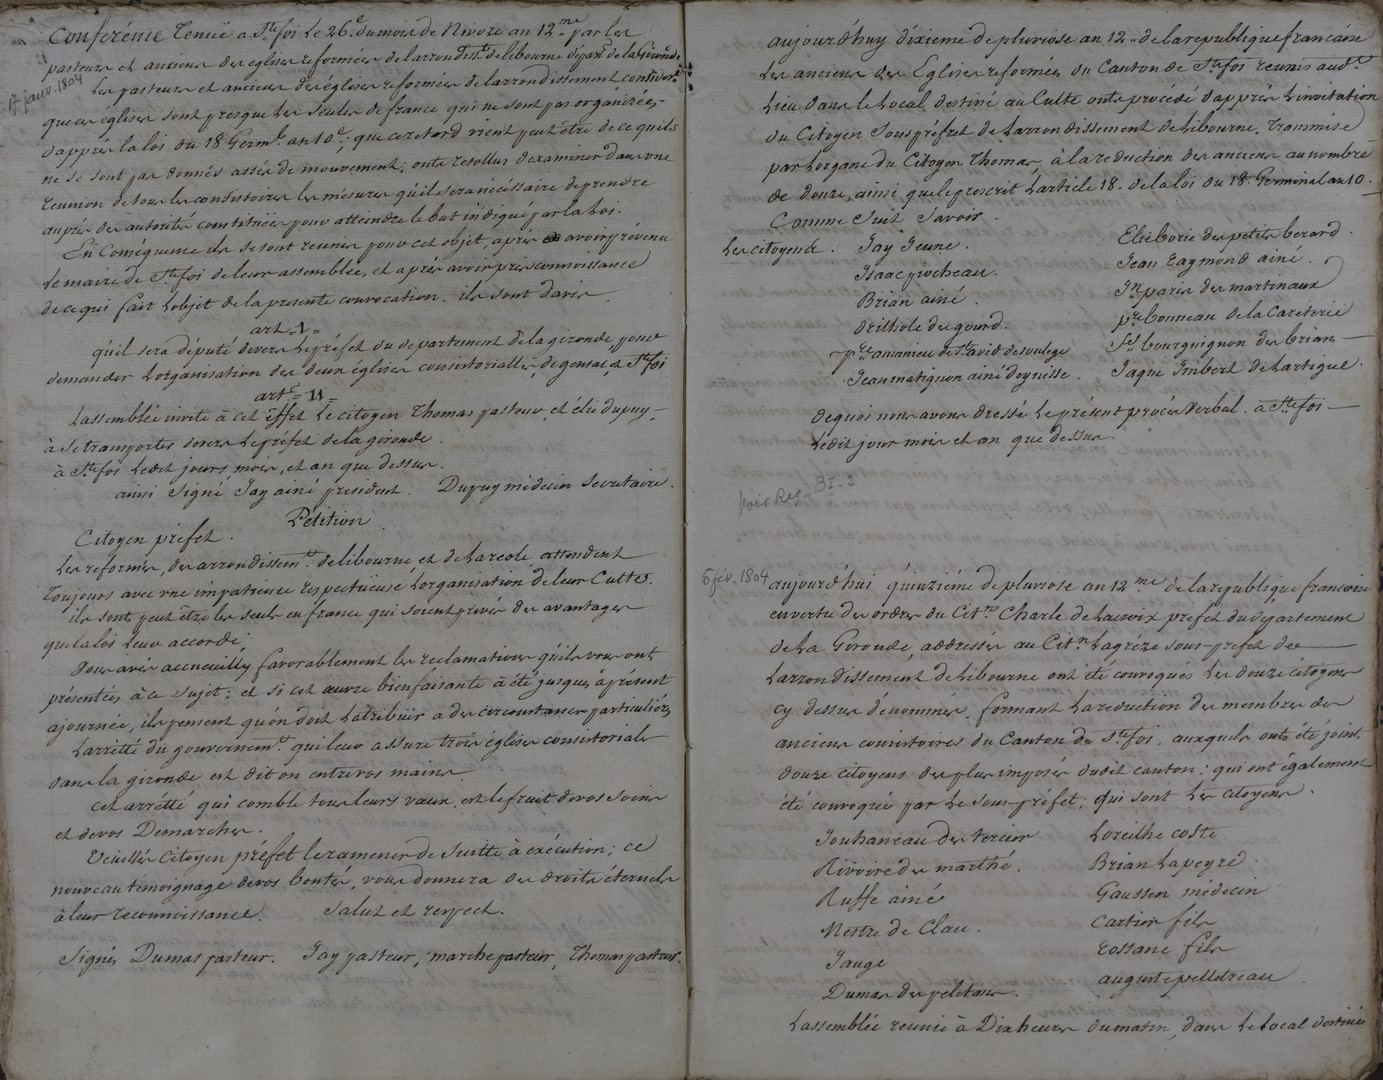 Conférence tenüe a Ste foi le 26e. du mois de Nivose an 12me. par les
pasteurs et anciens des eglises reformées de larrondisst. de libourne départt. de la Gironde
17 janv. 1804
Les pasteurs et anciens des églises reformées de larrondissement considért.
que ces églises sont presque les seules de france qui ne sont pas organizées,
d'apprés la loi du 18 Germl. an 10e; que ce retard vient peut être de ce quils
ne se sont pas donnés assés de mouvement; ont resollus dexaminer dans une
reunion de tous les consistoires les mésures qu'il sera nécéssaire de prendre
auprés des autorités constituées pour atteindre le but indiqué par la loi.
En Conséquence ils se sont reunis pour cet objet, aprés avoir prévenu
le maire de Ste foi de leur assemblée, et aprés avoir pris connoissance
de ce qui fait lobjet de la presente convocation. ils sont davis.
art. 1=
qu'il sera député devers le préfet du departement de la gironde pour
demander lorganisation des deux églises consistorialles, de gensac et Ste foi
arte. = 11 =
Lassemblée invite à cet éffet le citoyen Thomas pasteur et élie dupuy,
à se transporter devers le préfet de la gironde.
à Ste foi ledit jours mois, et an que dessus.
ainsi signé Jay ainé president. Dupuy médecin secretaire.
Pétition
Citoyen préfet.
Les reformés, des arrondissemts. de libourne, et de La reole, attendent
toujours avec une impatience respectüeuse l'organisation de leur Cultes.
ils sont peut être les seuls en france qui soient privés des avantages
que la loi leur accorde.
Vous avés accueuilly favorablement les reclamations qu'ils vous ont
présentés à ce sujet: et si cet auvre bienfaisante à été jusques apresent
ajournée, ils pensent qu'on doit l'atribüir a des circonstances particuliérés
Larretté du gouvernemt. qui leur assure trois églises consistoriale
dans la gironde est dit on entre vos mains.
Cet arrétté qui comble tous leurs vœux est le fruit de vos soins
et de vos Demarches.
Veuillés citoyen préfet le ramener de suitte à exécution; ce
nouveau témoignage de vos bontés, vous donnera des droits éternels
à leur reconnoissance. Salut et respect.
Signés Dumas pasteur. Jay pasteur, marche pasteur, Thomas pasteur.
aujourd'huy dixieme de pluviose an 12 de la republique francaise
Les anciens des Eglises reformées du Canton de Ste foi reunis audt.
Lieu dans le local destiné au Culte ont procédé d'apprés Linvitation
du Citoyen Souspréfet de Larrondissement de Libourne, transmise
par l'organe du Citoyen Thomas, à la reduction des anciens au nombre
de douze, ainsi que le prescrit l'article 18. de la loi du 18. Germinal an 10.
Comme Suit Savoir.
Les citoyens. Jay Jeune. Elie borie des petits berard.
Isaac piocheau. Jean Raymond ainé.
Brian ainé. Jn. paris des martinaux
drilhole de gourd. pre. bonneau de la Careterie
amanieu de St. avid de soulege fcs. bourguignon des brians
Jean matignon ainé d'eynesse. Jaque Imbert de Lartigue.
de quoi nous avons dressé le présent procés verbal. à Ste foi
Ledit jour mois et an que dessus.
Voir Reg. B I-2
6 fév. 1804
aujourd'hui quinziéme de pluviose an 12me. de la republique francoise
en vertu des ordres du Citn. Charle de Lacroix préfet du département
de La Gironde, addressés au Citn. Lagréze sous-préfet de
Larrondissement de Libourne ont été convoqués Les douze citoyens
cy dessus dénommés formant La reduction des membres des
anciens consistoires du Canton de Ste foi. auxquels ont été joint
douze citoyens des plus imposés dudit canton: qui ont également
été convoqués par Le sous-préfet; qui sont Les citoyens.
Jouhaneau des terciers Loreilhe coste
Rivoire du marthe. Brian Lapeyre.
Ruffe ainé Gaussen médecin
Mestre de Clau. Cartier fils
Jauge Rossane fils
Dumas des peletans. auguste pelletreau
Lassemblée reunie à Dix heures du matin, dans Le Local destiné